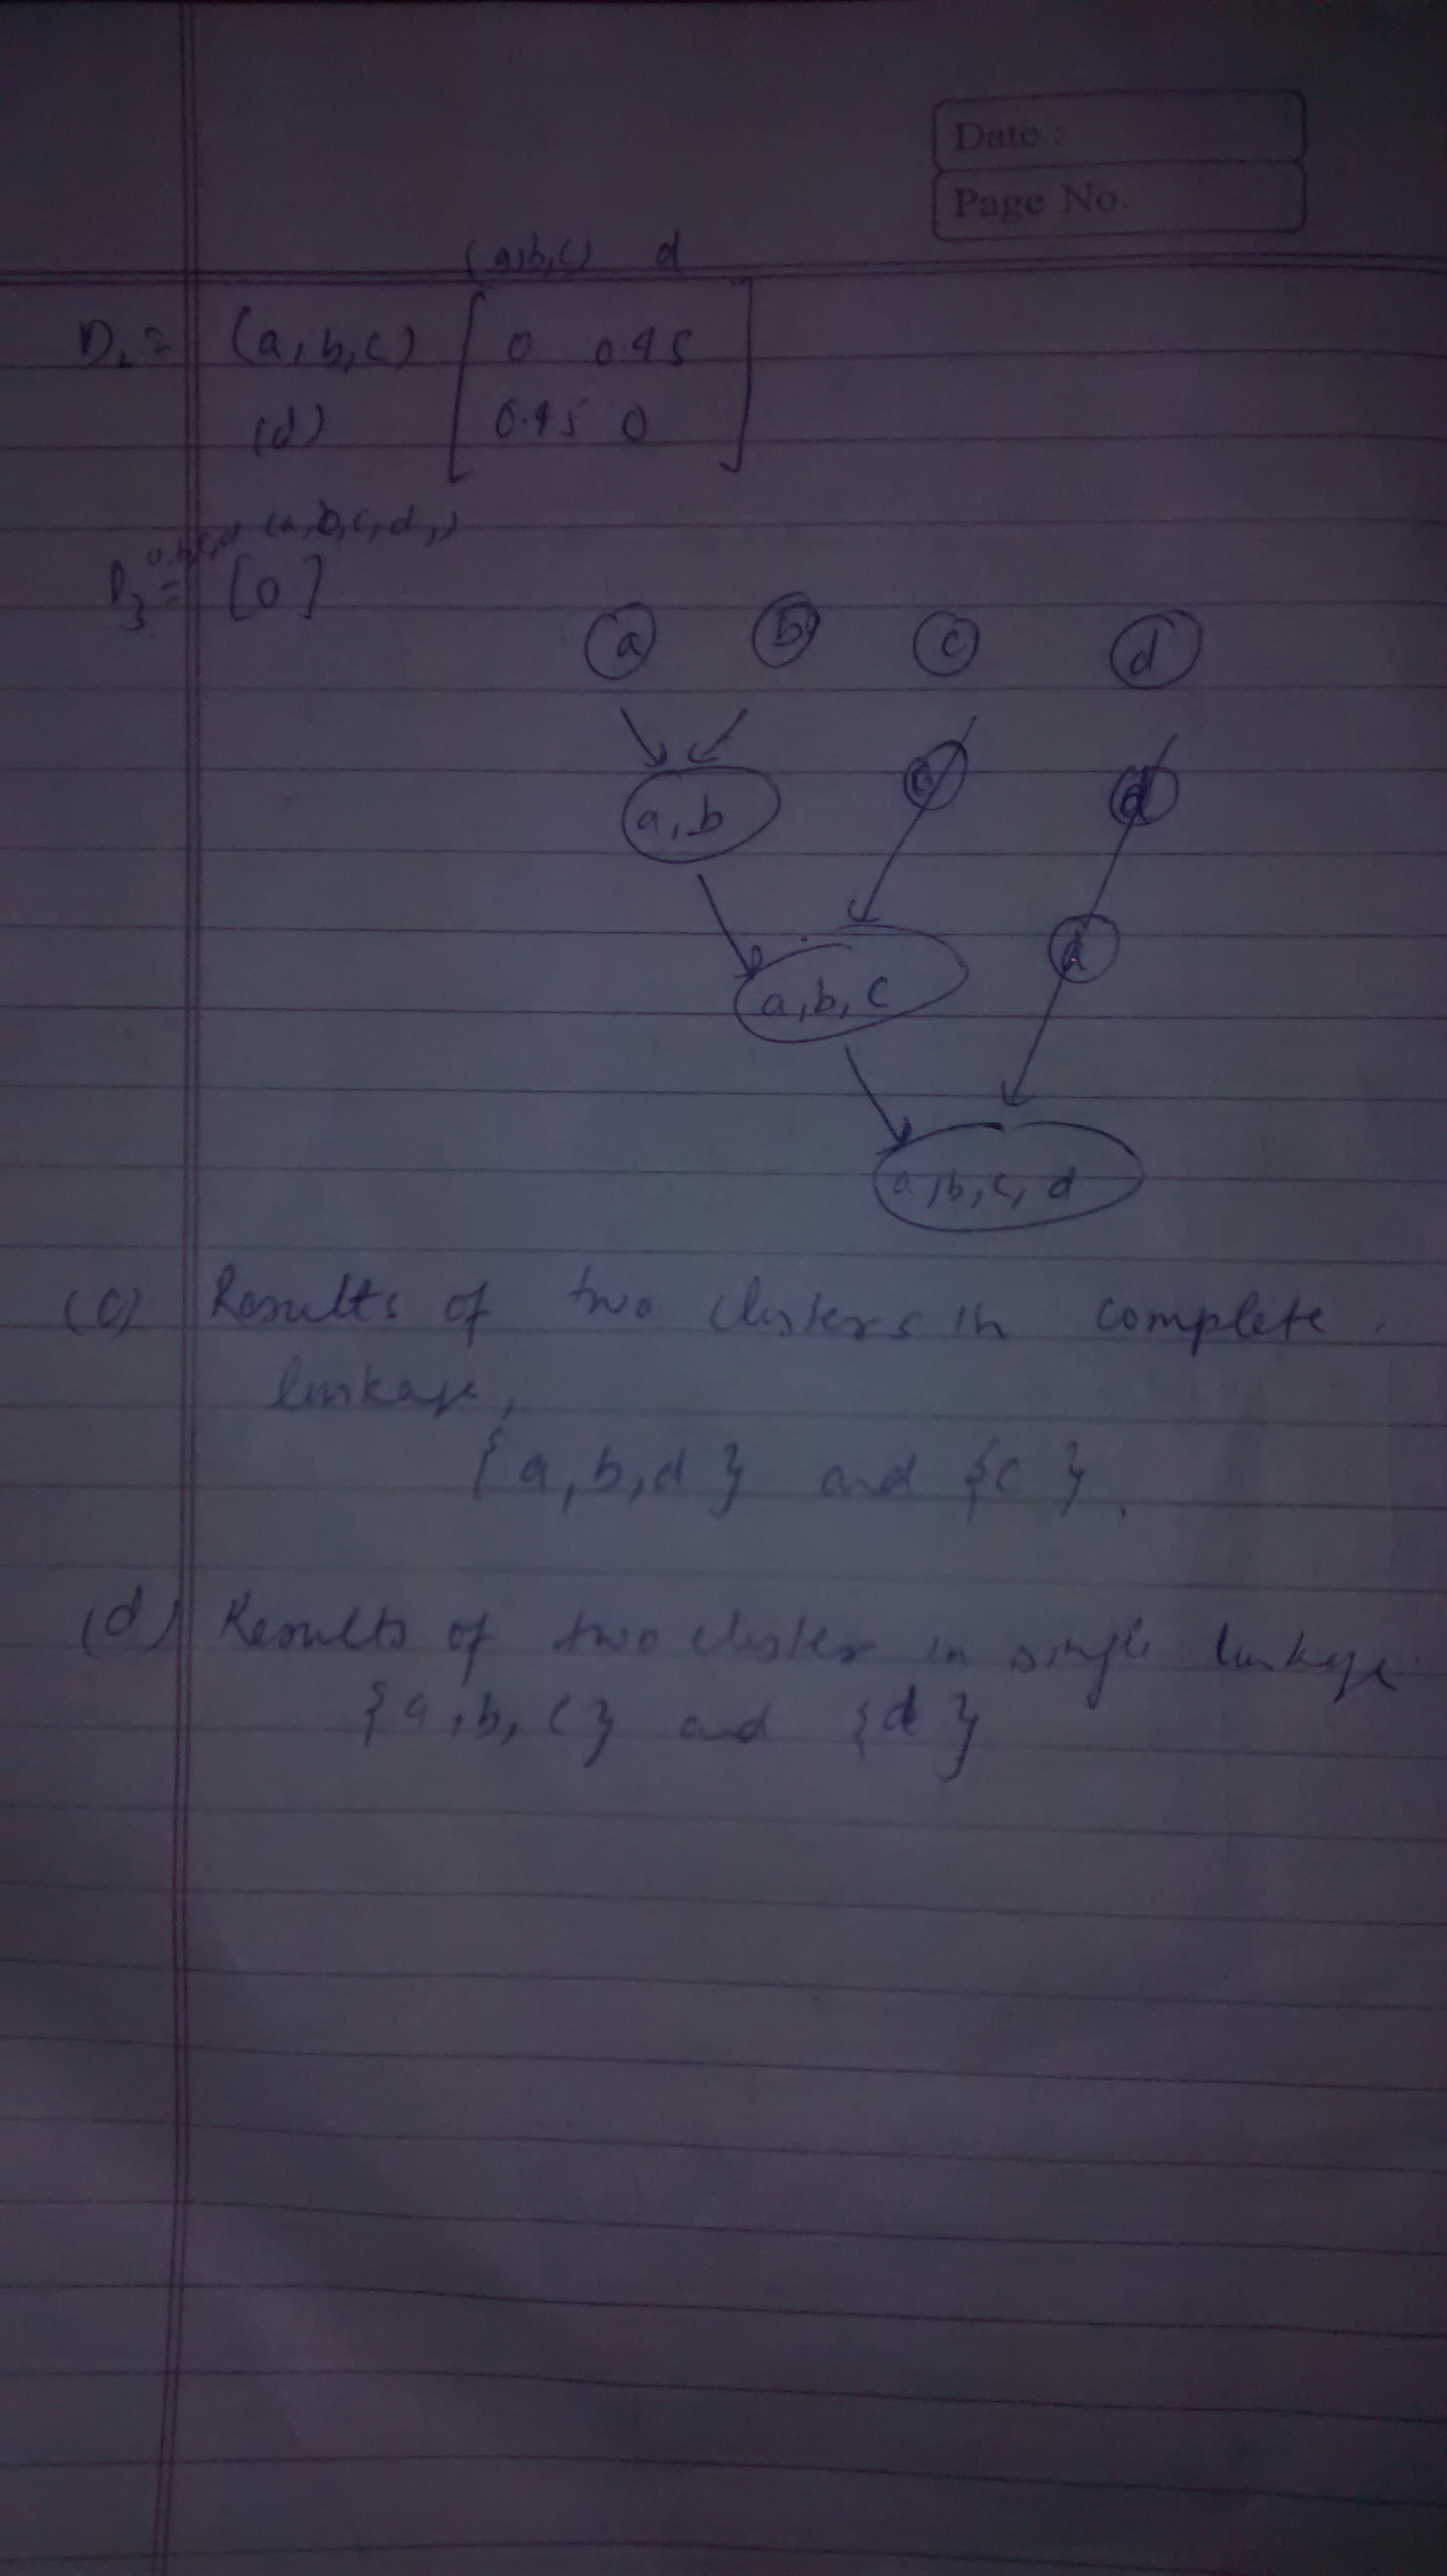 Date :
Page No.
(a,b,c) d
D₂ = (a,b,c) [ 0 0.45
(d) 0.45 0 ]
a,b,c,d (a,b,c,d,)
D₃ = [0]
a b c d
a,b c d
a,b,c d
a,b,c,d
(c) Results of two clusters in complete
linkage,
{a,b,d} and {c}.
(d) Results of two cluster in single linkage
{a,b,c} and {d}